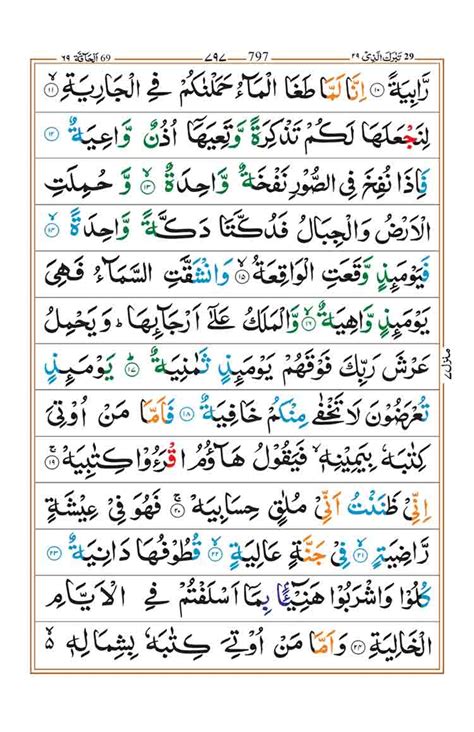 تبٰرك الذی ٢٩ 29 ٧٩٧ 797 الحآقة ٦٩ 69
رَّابِيَةً ۝١٠ اِنَّا لَمَّا طَغَا الْمَآءُ حَمَلْنٰكُمْ فِي الْجَارِيَةِ ۝١١
لِنَجْعَلَهَا لَكُمْ تَذْكِرَةً وَّتَعِيَهَاۤ اُذُنٌ وَّاعِيَةٌ ۝١٢
فَاِذَا نُفِخَ فِي الصُّوْرِ نَفْخَةٌ وَّاحِدَةٌ ۝١٣ وَّ حُمِلَتِ
الْاَرْضُ وَالْجِبَالُ فَدُكَّتَا دَكَّةً وَّاحِدَةً ۝١٤
فَيَوْمَىِٕذٍ وَّقَعَتِ الْوَاقِعَةُ ۝١٥ وَانْشَقَّتِ السَّمَآءُ فَهِيَ
يَوْمَىِٕذٍ وَّاهِيَةٌ ۝١٦ وَّالْمَلَكُ عَلٰۤى اَرْجَآىِٕهَا ؕ وَيَحْمِلُ
عَرْشَ رَبِّكَ فَوْقَهُمْ يَوْمَىِٕذٍ ثَمٰنِيَةٌ ۝١٧ يَوْمَىِٕذٍ
تُعْرَضُوْنَ لَا تَخْفٰى مِنْكُمْ خَافِيَةٌ ۝١٨ فَاَمَّا مَنْ اُوْتِيَ
كِتٰبَهٗ بِيَمِيْنِهٖ ۙ فَيَقُوْلُ هَآؤُمُ اقْرَءُوْا كِتٰبِيَهْ ۝١٩
اِنِّيْ ظَنَنْتُ اَنِّيْ مُلٰقٍ حِسَابِيَهْ ۝٢٠ فَهُوَ فِيْ عِيْشَةٍ
رَّاضِيَةٍ ۝٢١ فِيْ جَنَّةٍ عَالِيَةٍ ۝٢٢ قُطُوْفُهَا دَانِيَةٌ ۝٢٣
كُلُوْا وَاشْرَبُوْا هَنِيْٓـًٔۢا بِمَاۤ اَسْلَفْتُمْ فِي الْاَيَّامِ
الْخَالِيَةِ ۝٢٤ وَاَمَّا مَنْ اُوْتِيَ كِتٰبَهٗ بِشِمَالِهٖ ۙ۬
منزل ٧